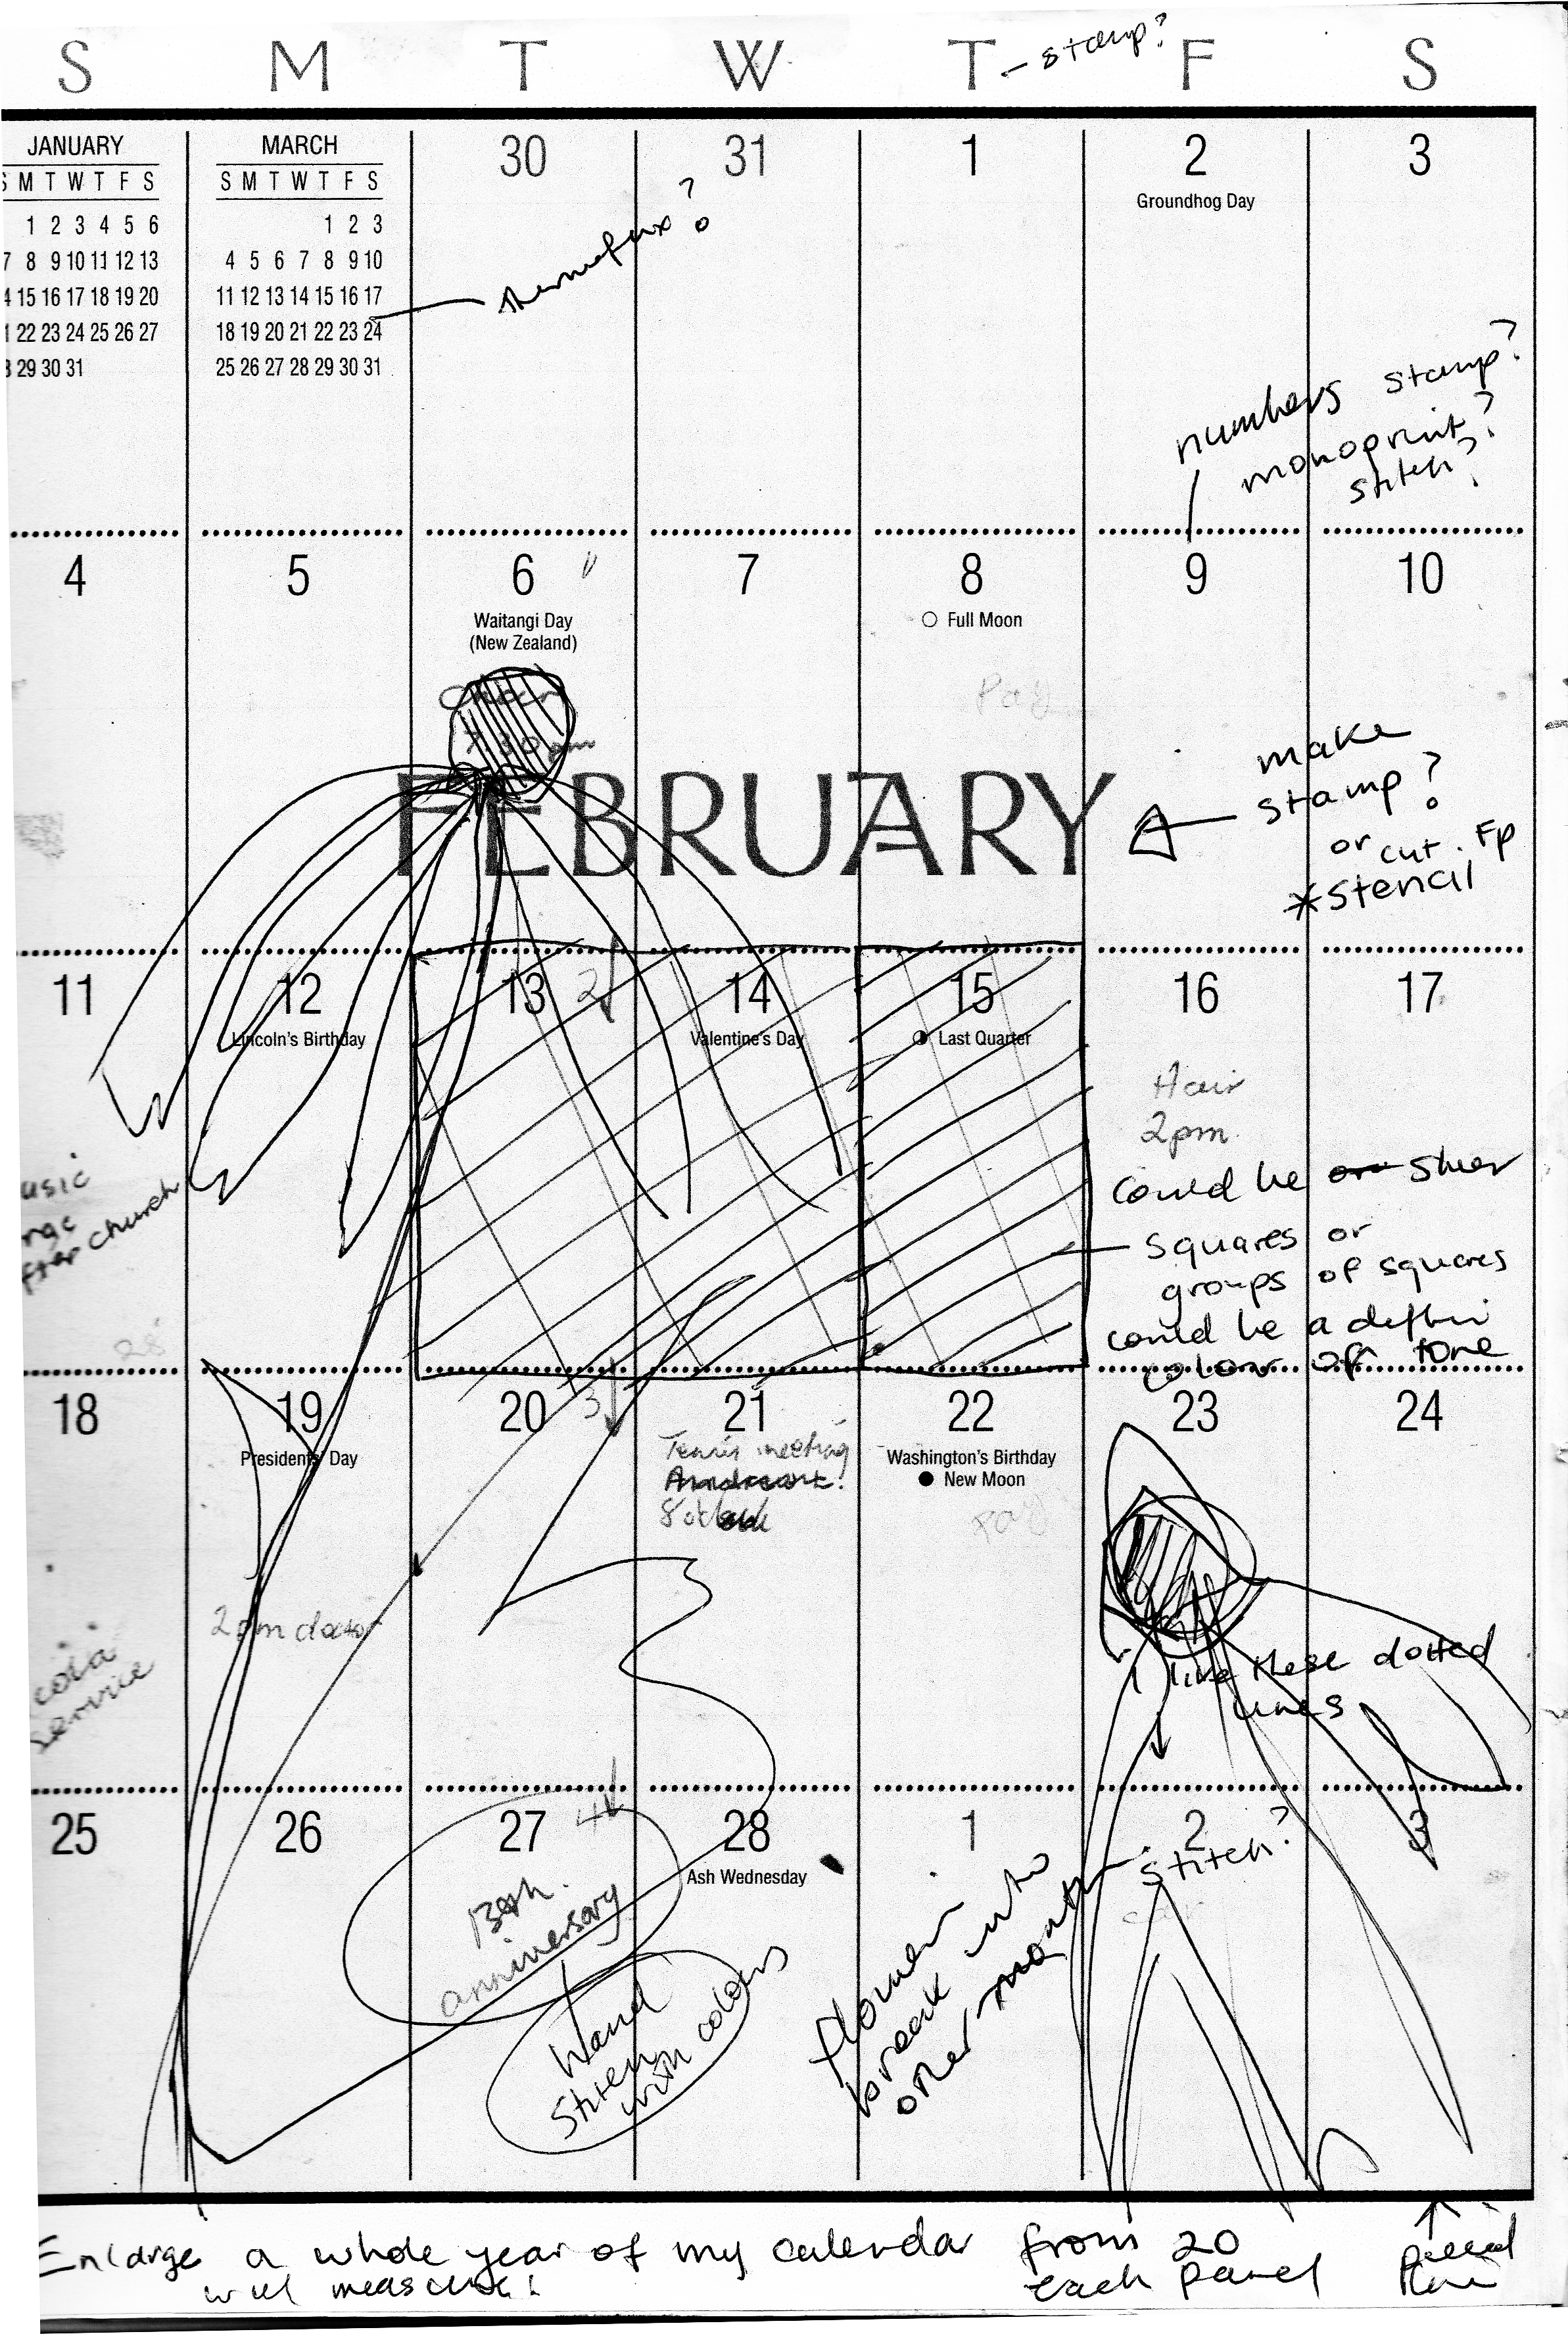 S M T W T F S
– stamp?
JANUARY
S M T W T F S
1 2 3 4 5 6
7 8 9 10 11 12 13
4 15 16 17 18 19 20
1 22 23 24 25 26 27
8 29 30 31
MARCH
S M T W T F S
1 2 3
4 5 6 7 8 9 10
11 12 13 14 15 16 17
18 19 20 21 22 23 24
25 26 27 28 29 30 31
30
31
1
2
Groundhog Day
3
thermofax?
numbers stamp?
monoprint?
stitch?
4
5
6
Waitangi Day
(New Zealand)
7
8
Full Moon
9
10
FEBRUARY
make
stamp?
or cut. Fp
*stencil
11
12
Lincoln's Birthday
13
2
14
Valentine's Day
15
Last Quarter
16
17
Hair
2pm
after church
could be sheer
squares or
groups of squares
could be a
colour off tone
18
19
Presidents' Day
20
3
21
22
Washington's Birthday
New Moon
23
24
Tennis meeting
2pm doctor
service
I like these dotted
lines
25
26
27
4
28
Ash Wednesday
1
2
3
stitch?
anniversary
Hand
Stitch
with colours
flowers
break into
other month
Enlarge a whole year of my calendar from 20
will measure! each panel